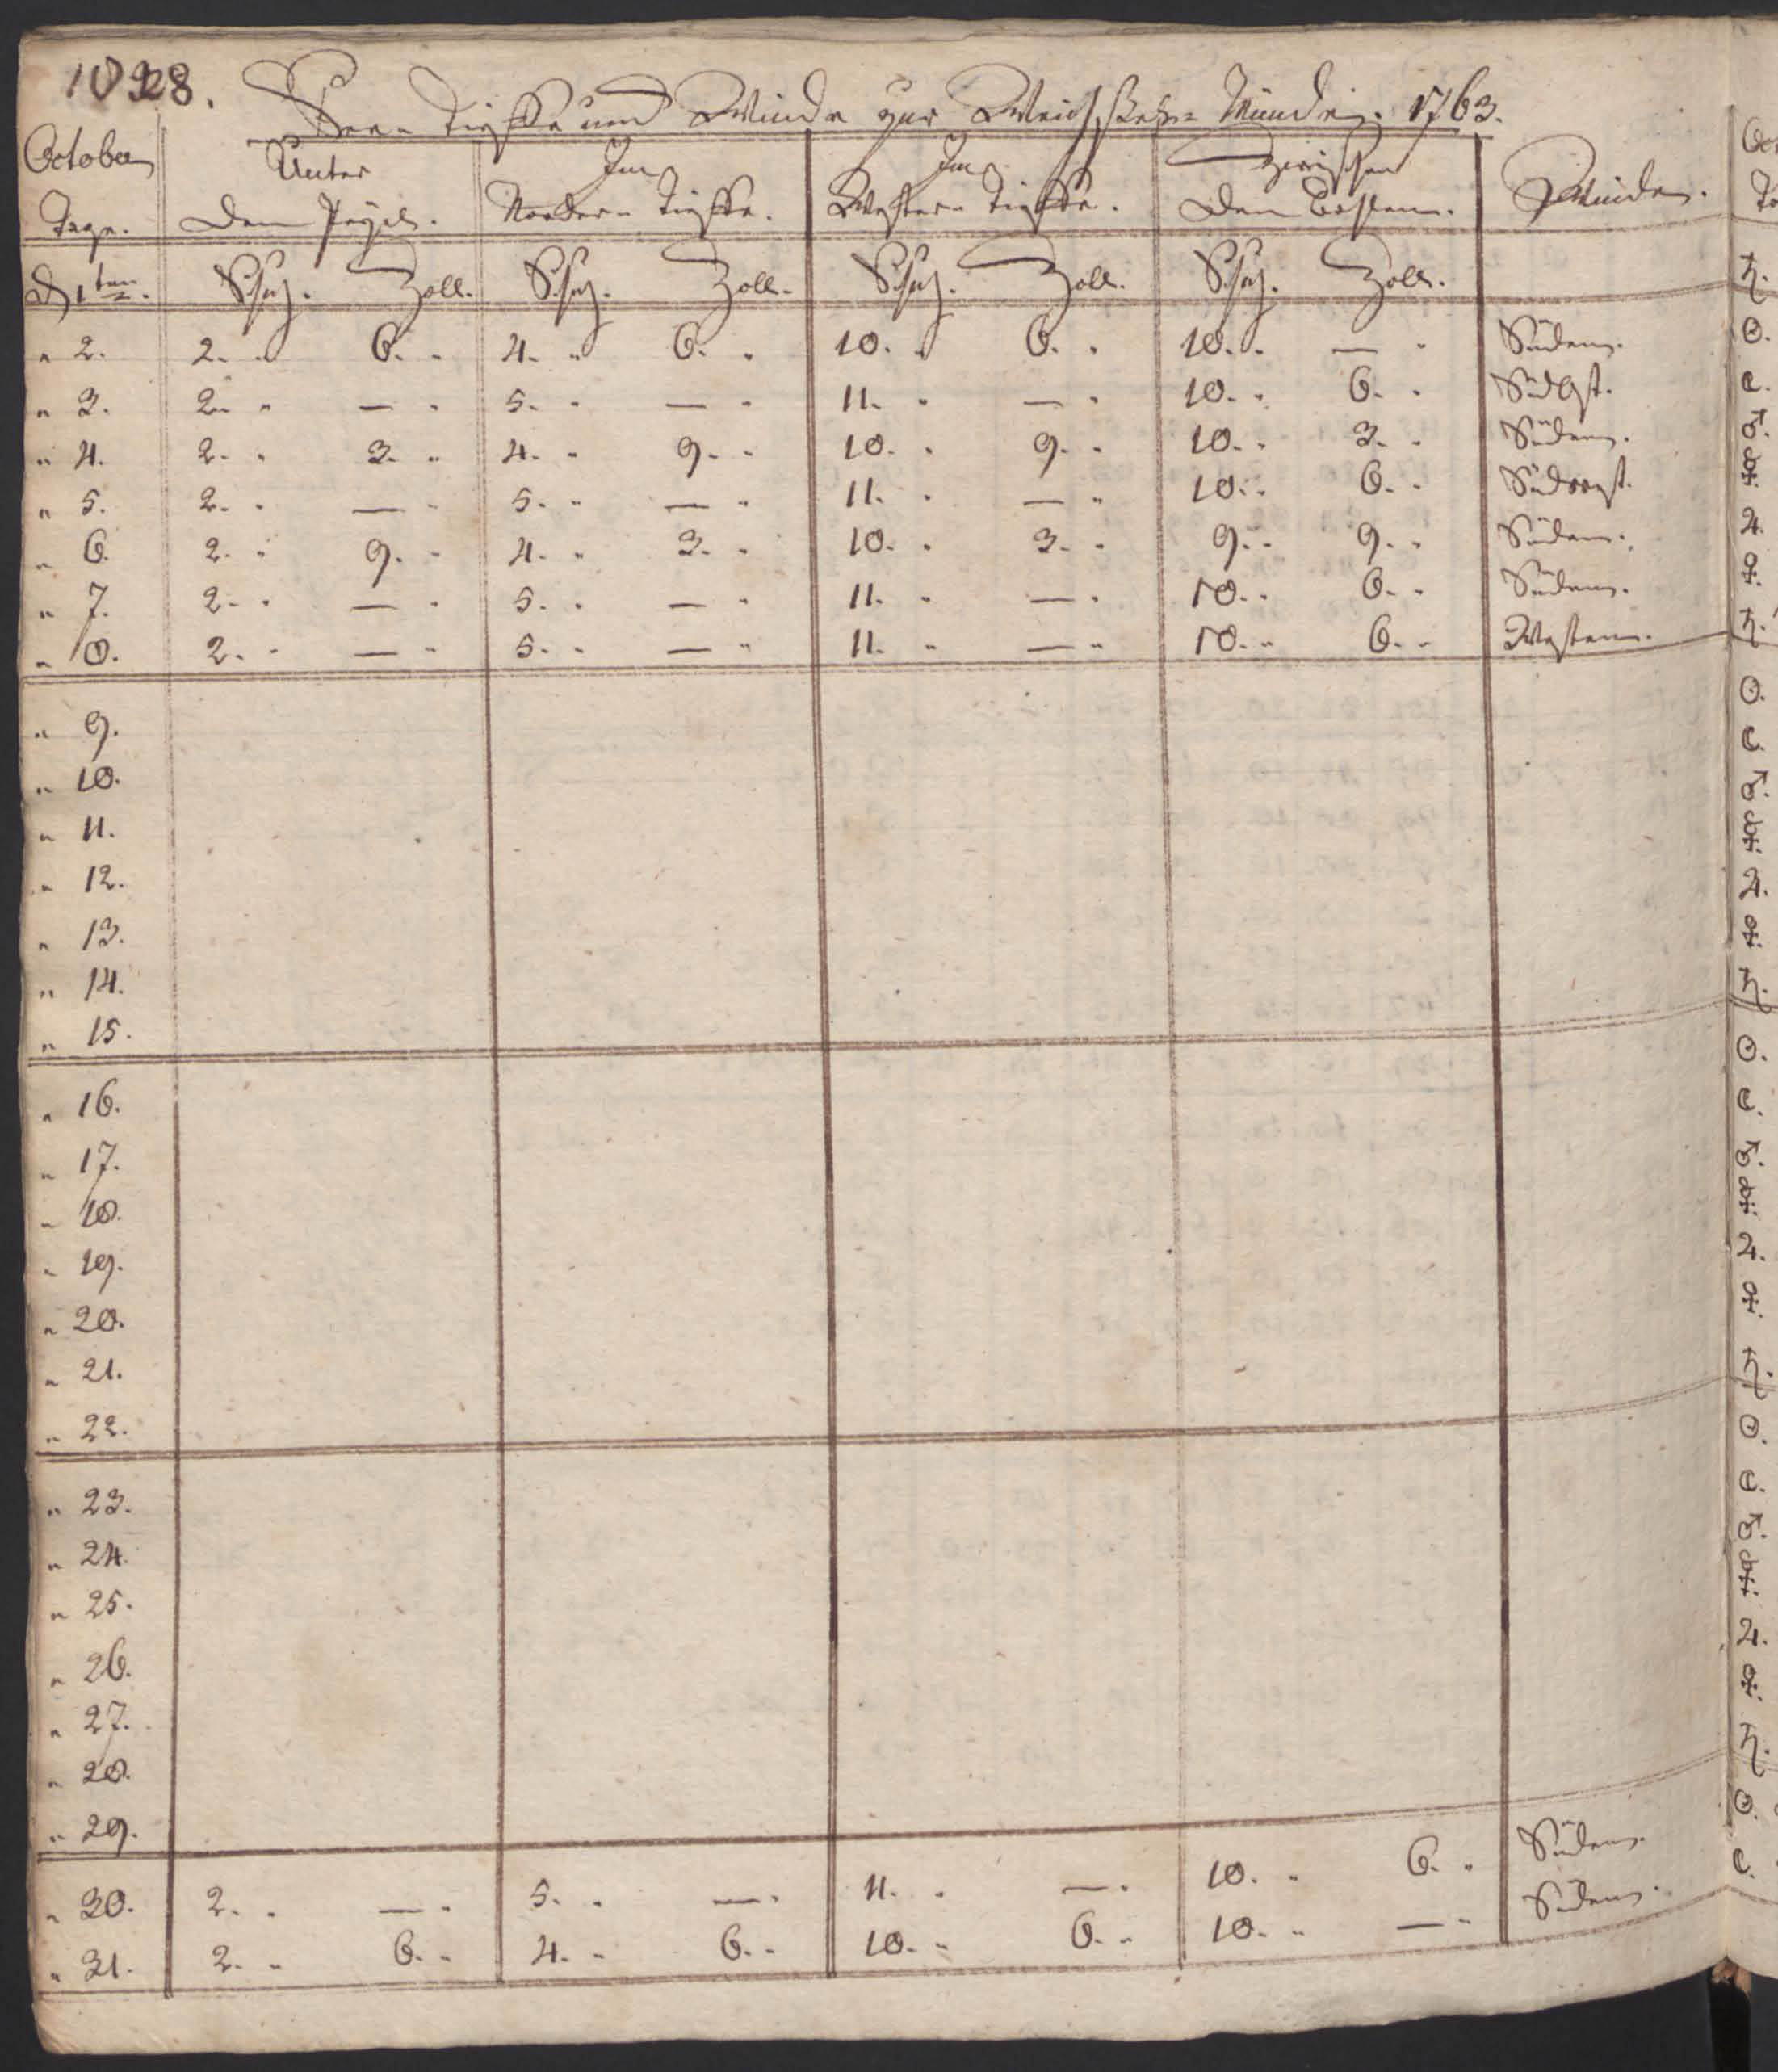 1028.
See- Tieffe und Winde zur Weichsel- Münde. 1763.
October Unter Im Im Zwischen Winden.
Tage. dem Pegel. Norder- Tieffe. Wester- Tieffe. den
D 1ten. Schuh. Zoll. Schuh. Zoll. Schuh. Zoll. Schuh. Zoll.
" 2. 2. " 6. " 4. " 6. " 10. " 6. " 10. " — " Süden.
" 3. 2. " — " 5. " — " 11. " — " 10. " 6. " SüdOst.
" 4. 2. " 3. " 4. " 9. " 10. " 9. " 10. " 3. " Süden.
" 5. 2. " — " 5. " — " 11. " — " 10. " 6. " Südwest.
" 6. 2. " 9. " 4. " 3. " 10. " 3. " 9. " 9. " Süden.
" 7. 2. " — " 5. " — " 11. " — " 10. " 6. " Süden.
" 8. 2. " — " 5. " — " 11. " — " 10. " 6. " Westen.
" 9.
" 10.
" 11.
" 12.
" 13.
" 14.
" 15.
" 16.
" 17.
" 18.
" 19.
" 20.
" 21.
" 22.
" 23.
" 24.
" 25.
" 26.
" 27.
" 28.
" 29.
" 30. 2. " — " 5. " — " 11. " — " 10. " 6. " Süden.
" 31. 2. " 6. " 4. " 6. " 10. " 6. " 10. " — " Süden.